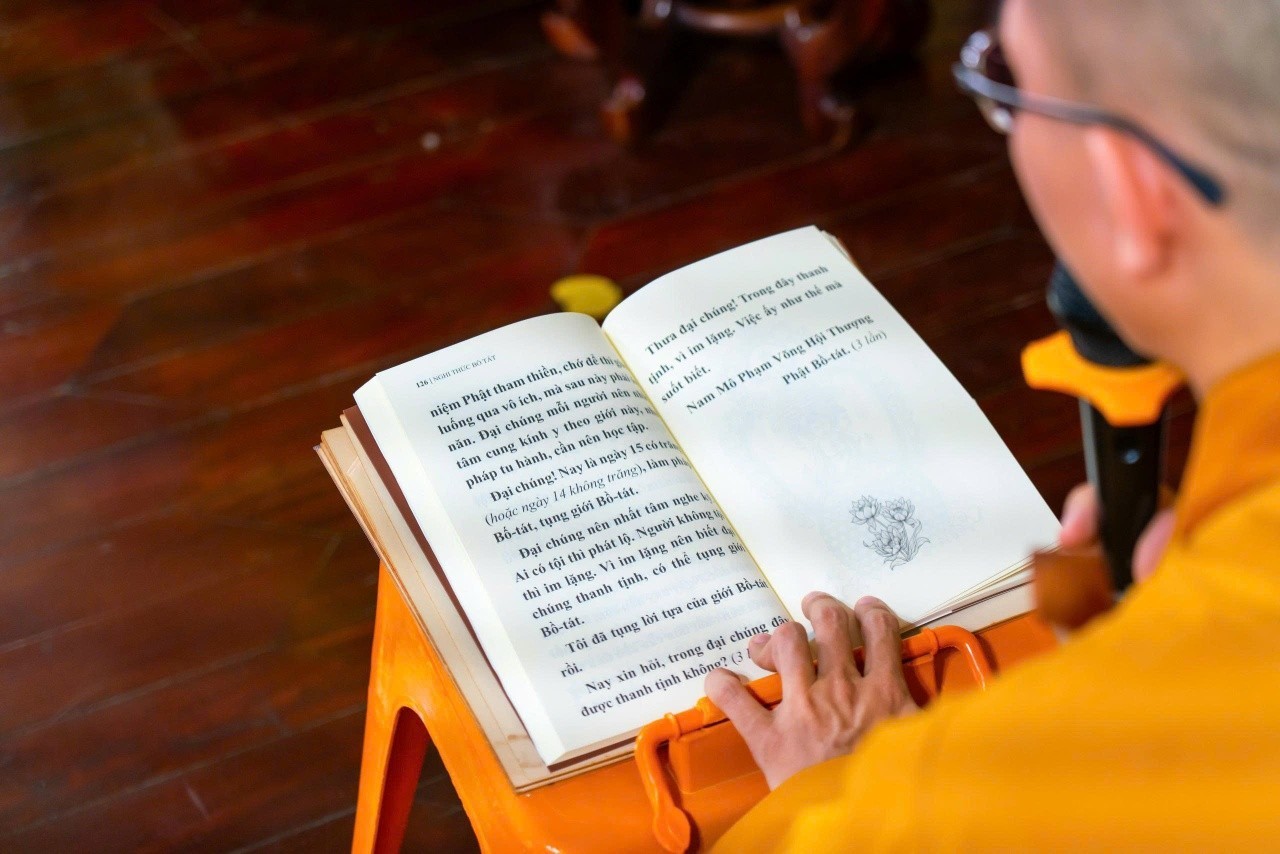 126 | NGHI THỨC BỒ TÁT
niệm Phật tham thiền, chớ để thì
luống qua vô ích, mà sau này phải
năn. Đại chúng mỗi người nên
tâm cung kính y theo giới này,
pháp tu hành, cần nên học tập.
Đại chúng! Nay là ngày 15 có
(hoặc ngày 14 không trăng), làm
Bố-tát, tụng giới Bồ-tát.
Đại chúng nên nhất tâm nghe
Ai có tội thì phát lộ. Người không
thì im lặng. Vì im lặng nên biết
chúng thanh tịnh, có thể tụng
Bồ-tát.
Tôi đã tụng lời tựa của giới Bồ-tát
rồi.
Nay xin hỏi, trong đại chúng
được thanh tịnh không? (3
Thưa đại chúng! Trong đây thanh
tịnh, vì im lặng. Việc ấy như thế mà
suốt biết.
Nam Mô Phạm Võng Hội Thượng
Phật Bồ-tát. (3 lần)